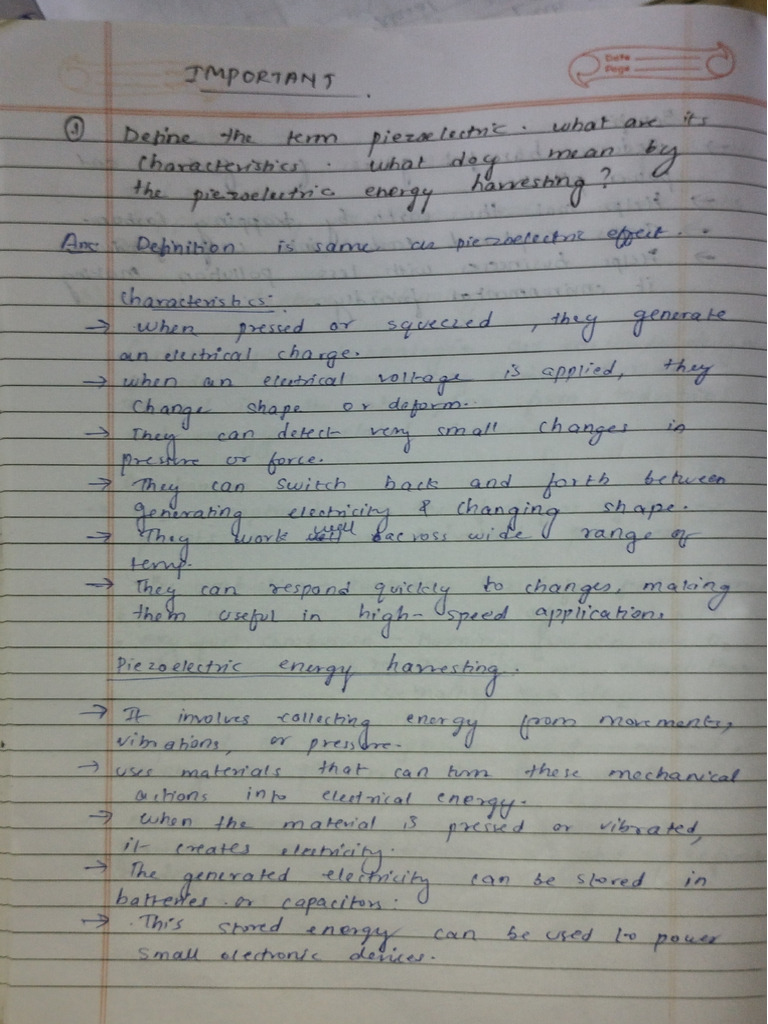 IMPORTANT
Date
Page
① Define the term piezoelectric. what are its
characteristics. what do you mean by
the piezoelectric energy harvesting?
Ans Definition is same as piezoelectric effect.
Characteristics:
→ when pressed or squeezed, they generate
an electrical charge.
→ when an electrical voltage is applied, they
change shape or deform.
→ They can detect very small changes in
pressure or force.
→ They can switch back and forth between
generating electricity & changing shape.
→ They work well across wide range of
temp.
→ They can respond quickly to changes, making
them useful in high-speed applications
Piezoelectric energy harvesting.
→ It involves collecting energy from movements,
vibrations, or pressure.
→ uses materials that can turn these mechanical
actions into electrical energy.
→ when the material is pressed or vibrated,
it creates electricity.
→ The generated electricity can be stored in
batteries or capacitors.
→ This stored energy can be used to power
small electronic devices.